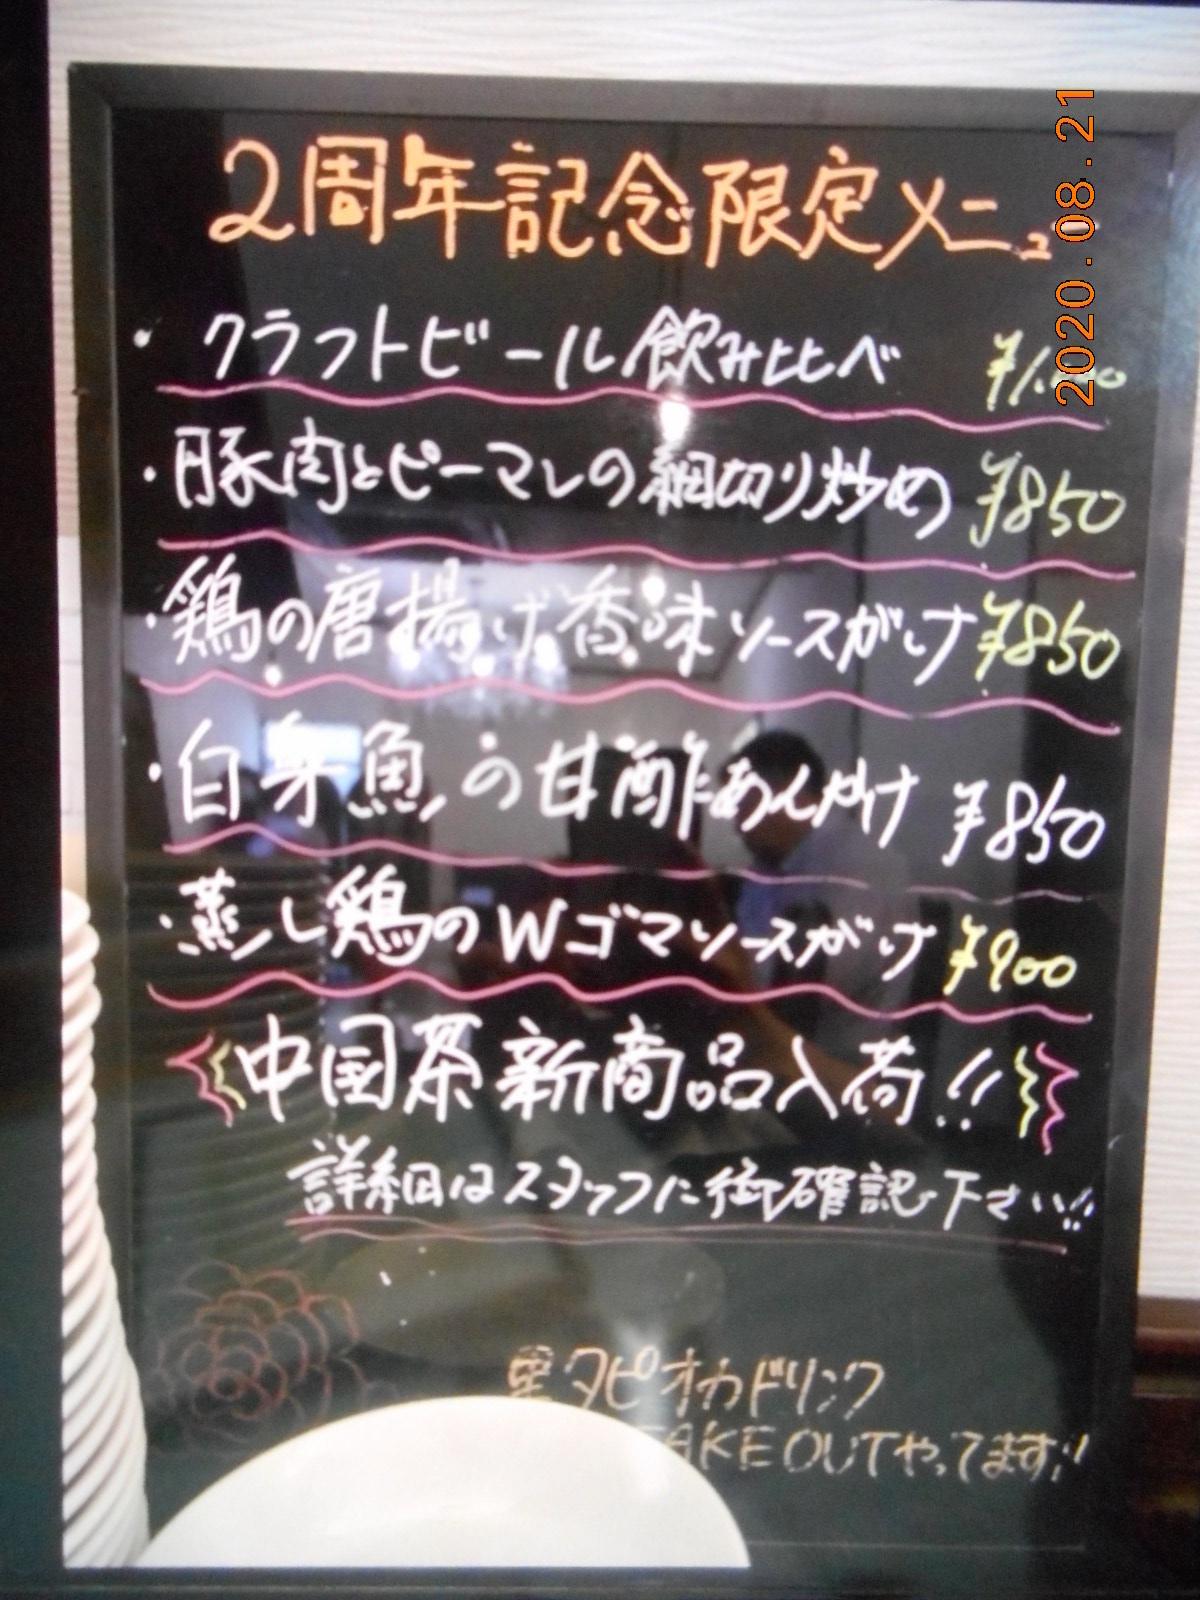 2周年記念限定メニュー
・クラフトビール飲み比べ ¥1,000
・豚肉とピーマンの細切り炒め ¥850
・鶏の唐揚げ香味ソースがけ ¥850
・白身魚の甘酢あんかけ ¥850
・蒸し鶏のWゴマソースがけ ¥900
中国茶新商品入荷!!
詳細はスタッフに御確認下さい!!
黒タピオカドリンク
AKEOUTやってます!!
2020.08.21